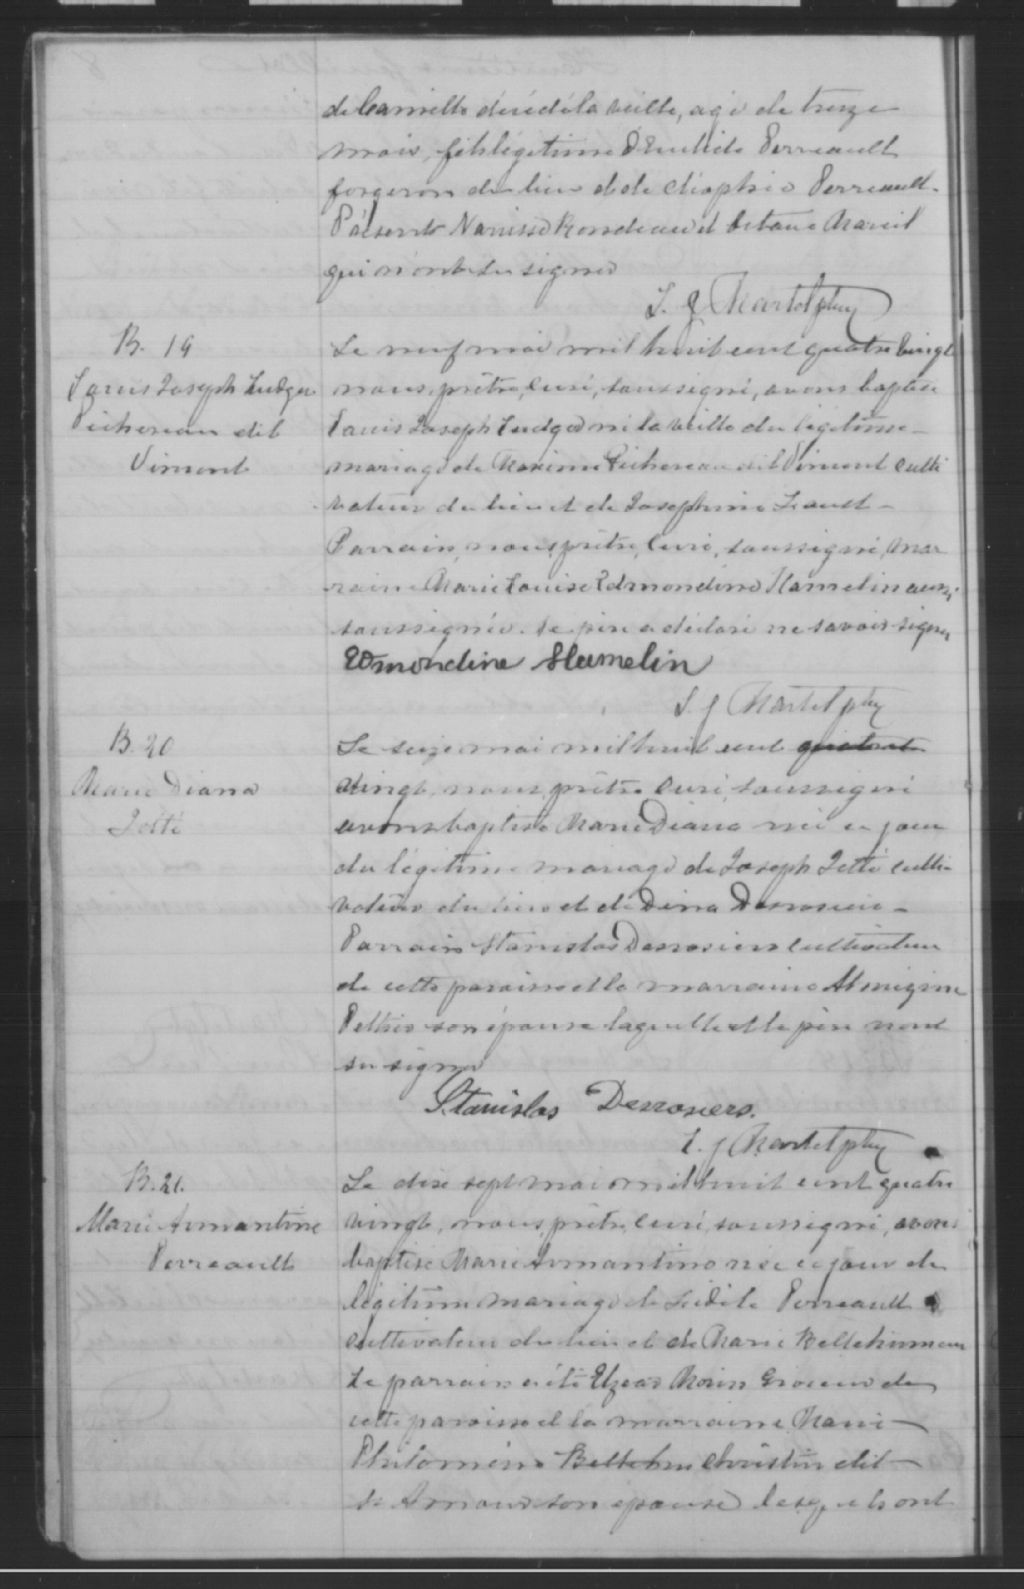 décédé la veille, agé de treize
mois, fils légitime Perreault
forgeron du lieu et de Perreault.
Présents Narcisse Rondeau et
qui n'ont su signer
B. 19
Le neuf mai mil huit cent quatre vingt
Louis Joseph Ludger
nous, prêtre, curé, soussigné, avons baptisé
dit
Louis Joseph Ludger né la veille du légitime
Vimont
mariage de Maxime dit Vimont culti
vateur du lieu et de Josephine
Parrain, nous, prêtre, curé, soussigné, mar
raine Marie Louise Edmondine Hamelin aussi
soussignée. Le père a déclaré ne savoir signer
Edmondine Hamelin
B. 20
Le seize mai mil huit cent quatre
Marie Diana
vingt, nous, prêtre curé, soussigné
Jetté
avons baptisé Marie Diana née ce jour
du légitime mariage de Joseph Jetté culti
vateur du lieu et de Dina Desrosiers
Parrain Stanislas Desrosiers cultivateur
de cette paroisse et la marraine
son épouse laquelle et le père n'ont
su signer
Stanislas Desrosiers.
B. 21.
Le dix sept mai mil huit cent quatre
Marie Armantine
vingt, nous, prêtre, curé, soussigné, avons
Perreault
baptisé Marie Armantine née ce jour du
légitime mariage de Perreault
cultivateur du lieu et de Marie Bellehumeur
Le parrain a été Elzear Morin de
cette paroisse et la marraine Marie
Philomène Christin dit
St Amour son épouse lesquels ont